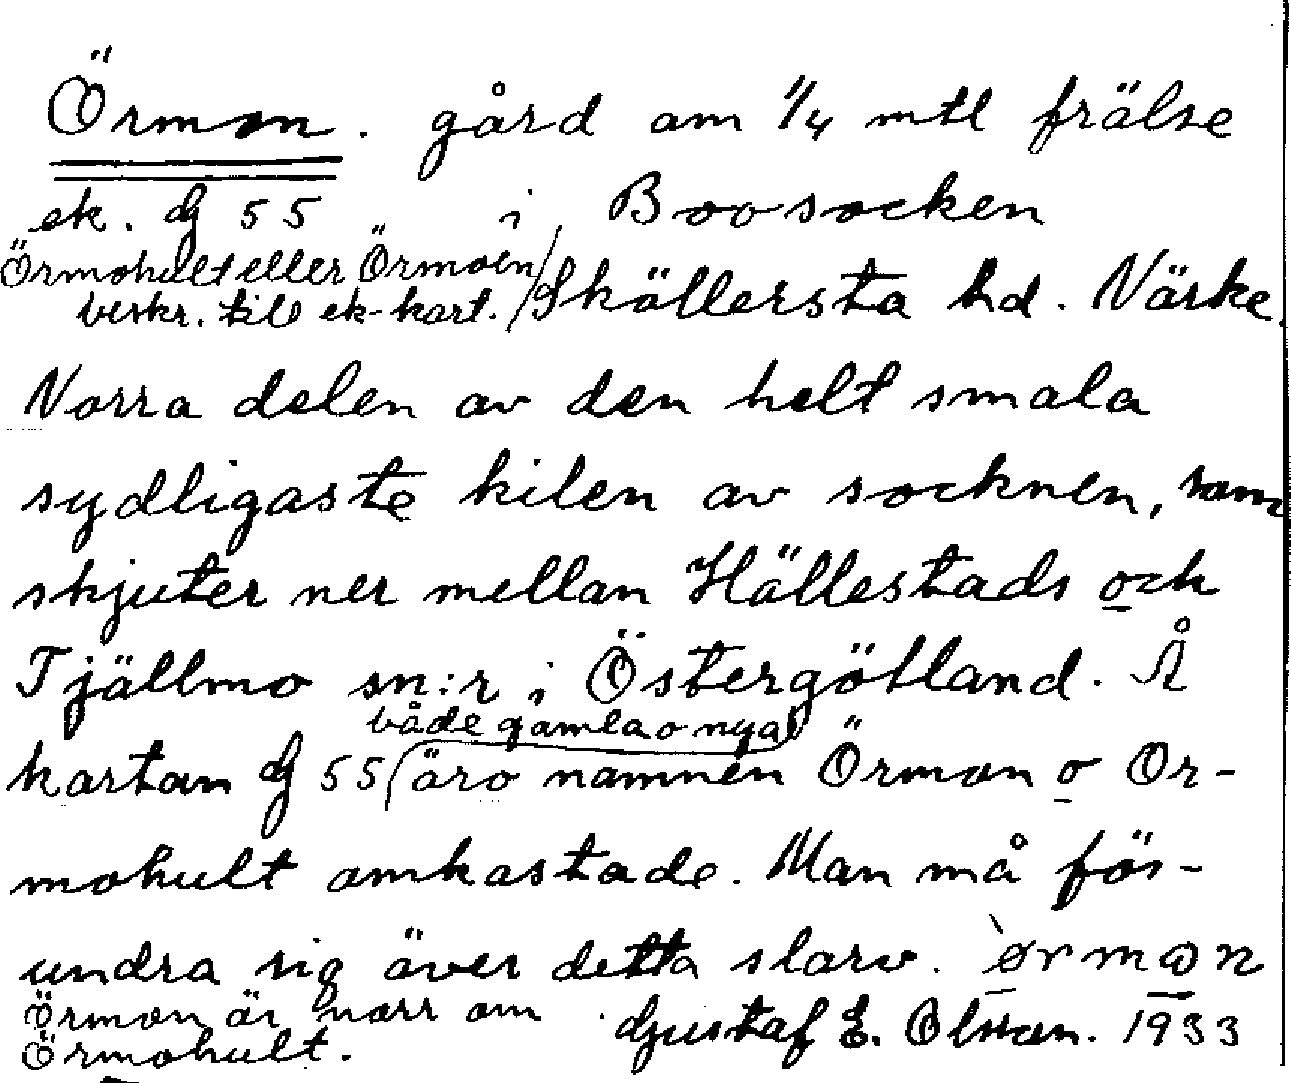 Örmon. gård om 1/4 mtl frälse
ek. dj 55 i Boo socken
Örmohult eller Örmoen
beskr. till ek-kart. Sköllersta hd. Närke.
Norra delen av den helt smala
sydligaste kilen av socknen, som
skjuter ner mellan Hällestads och
Tjällmo sn:r i Östergötland. Å
både gamla o nya
kartan dj 55 äro namnen Örmon o Or-
mohult omkastade. Man må för-
undra sig över detta slarv. `ørmɷn
Örmon är norr om Gustaf E. Olsson. 1933
Örmohult.